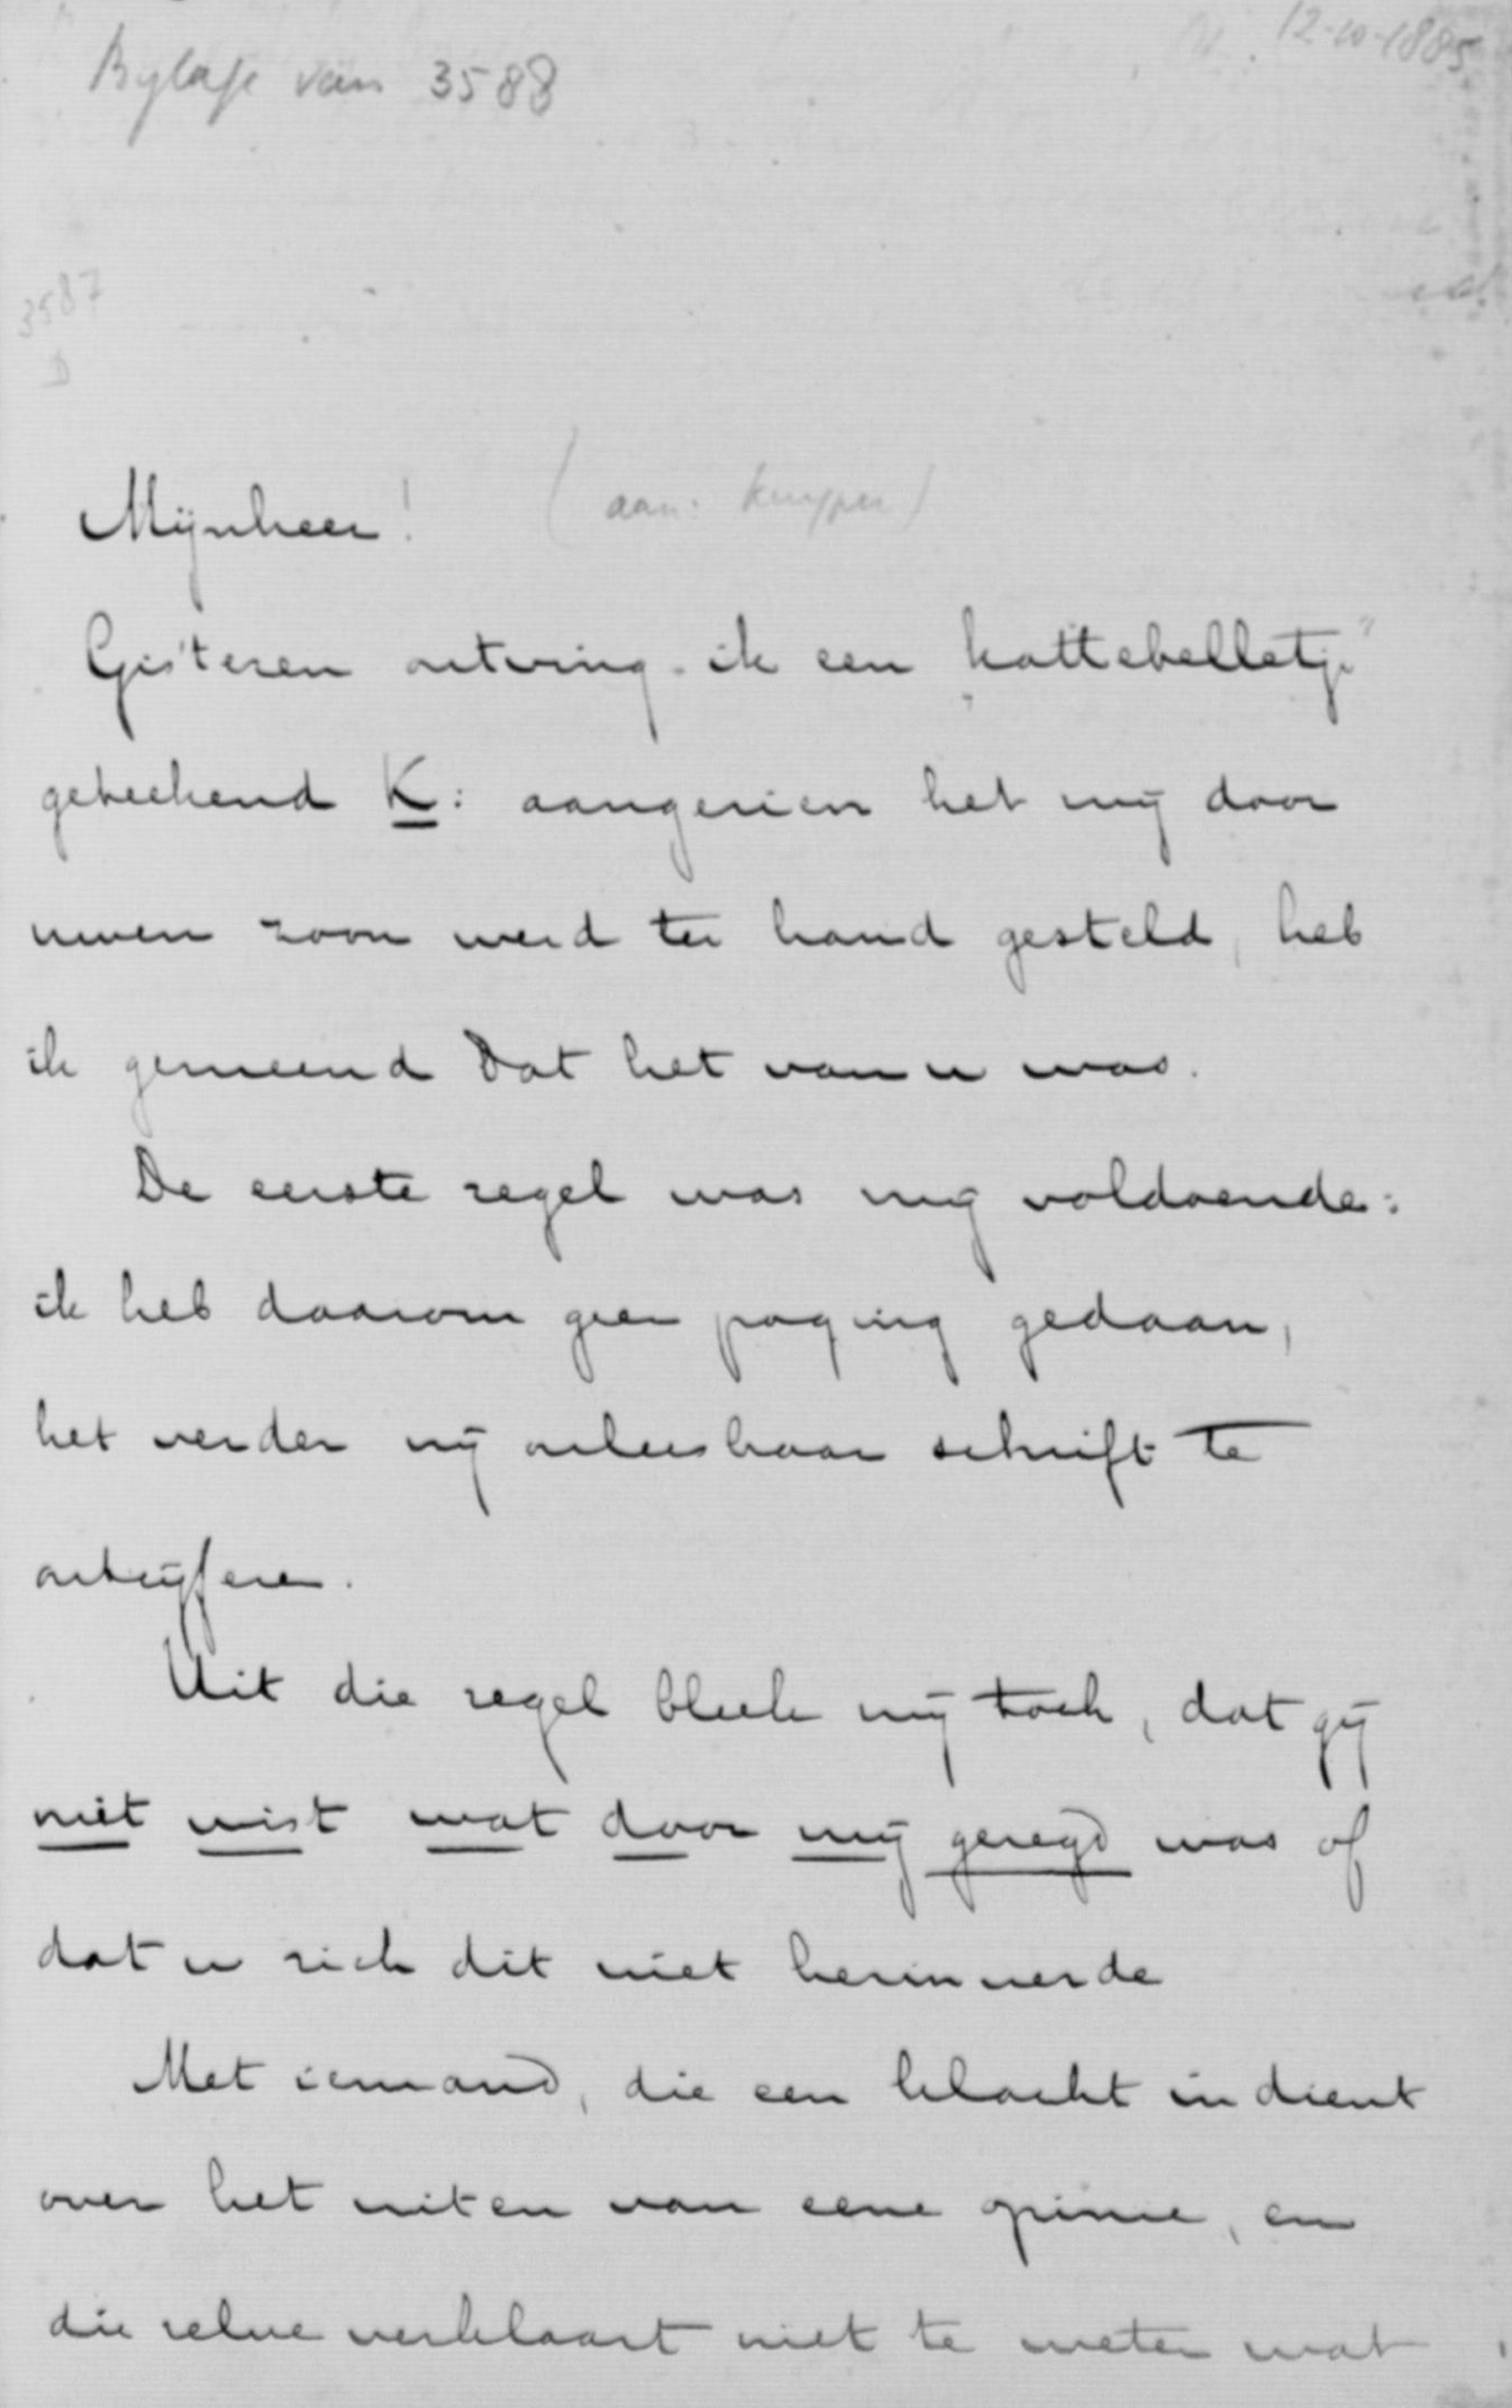 Bylage van 3588
12-10-1885
3587
D
Mijnheer! (aan: Kuyper)
Gisteren ontving ik een „kattebelletje"
geteekend K: aangezien het mij door
uwen zoon werd ter hand gesteld, heb
ik gemeend dat het van u was.
De eerste regel was mij voldoende:
ik heb daarom geen poging gedaan,
het verder mij onleesbaar schrift te
ontcijferen.
Uit die regel bleek mij toch, dat gij
niet wist wat door mij gezegd was of
dat u zich dit niet herinnerde
Met iemand, die een klacht indient
over het uiten van eene opinie, en
die zelve verklaart niet te weten wat